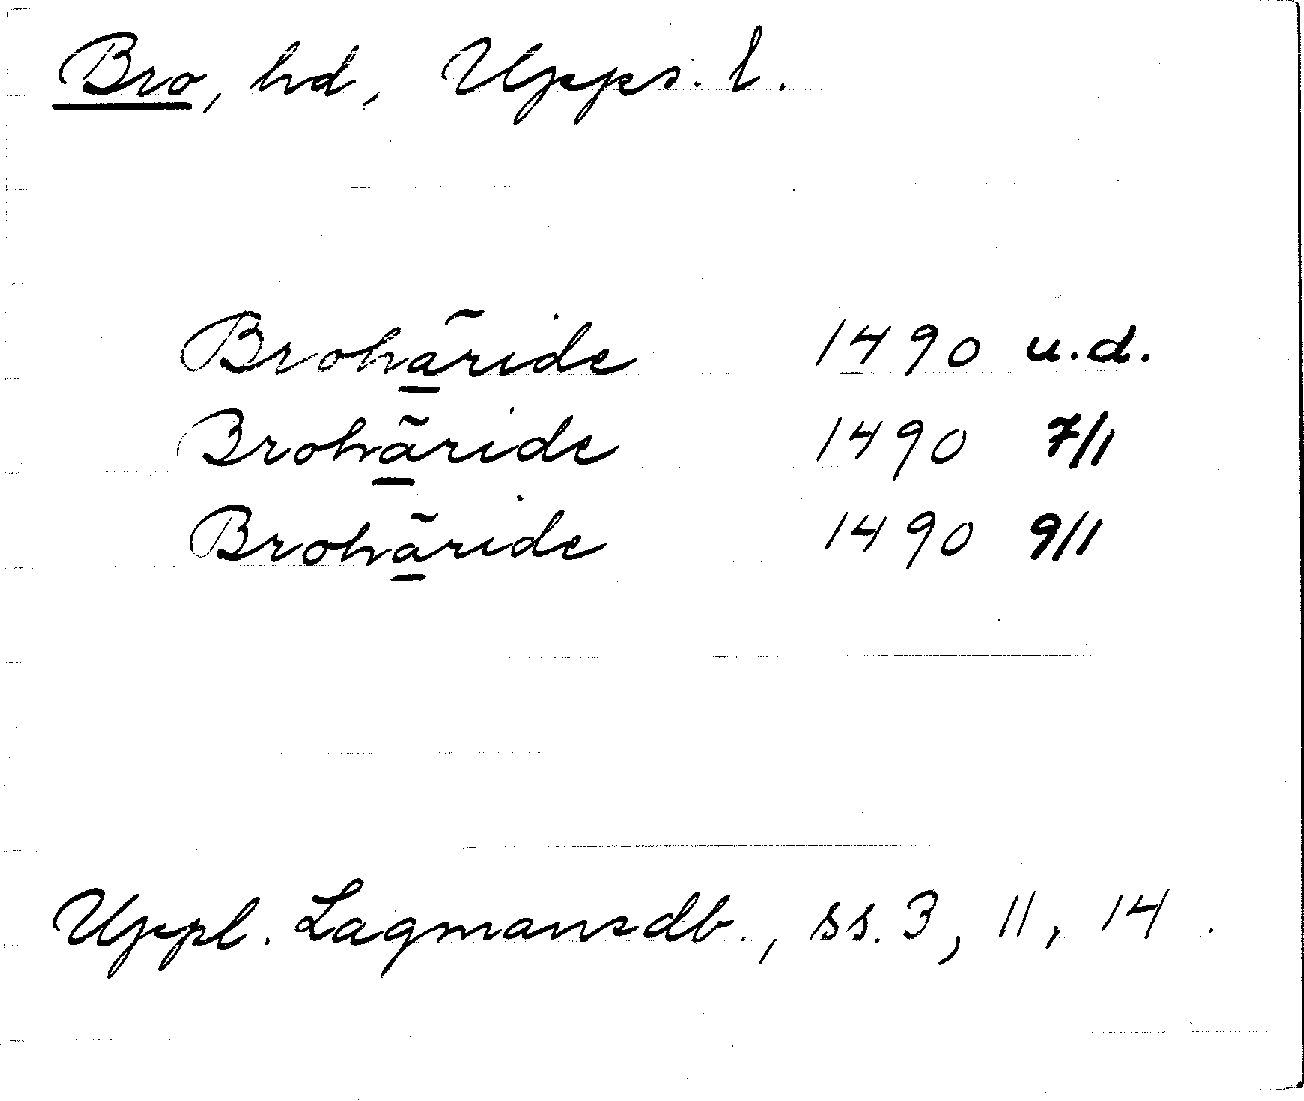 Bro, hd, Upps. l.
Brohãride 1490 u.d.
Brohãride 1490 7/1
Brohãride 1490 9/1
Uppl. Lagmansdb., ss. 3, 11, 14.